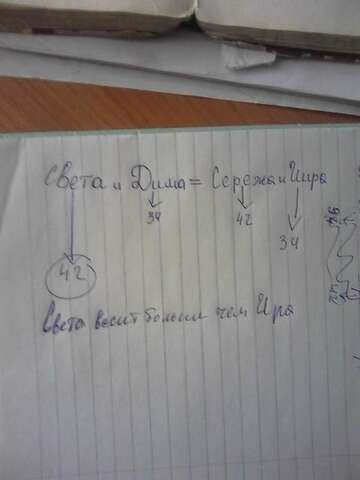 Света и Дима = Сережа и Ира
34 42
34
42
Света весит больши чем Ира